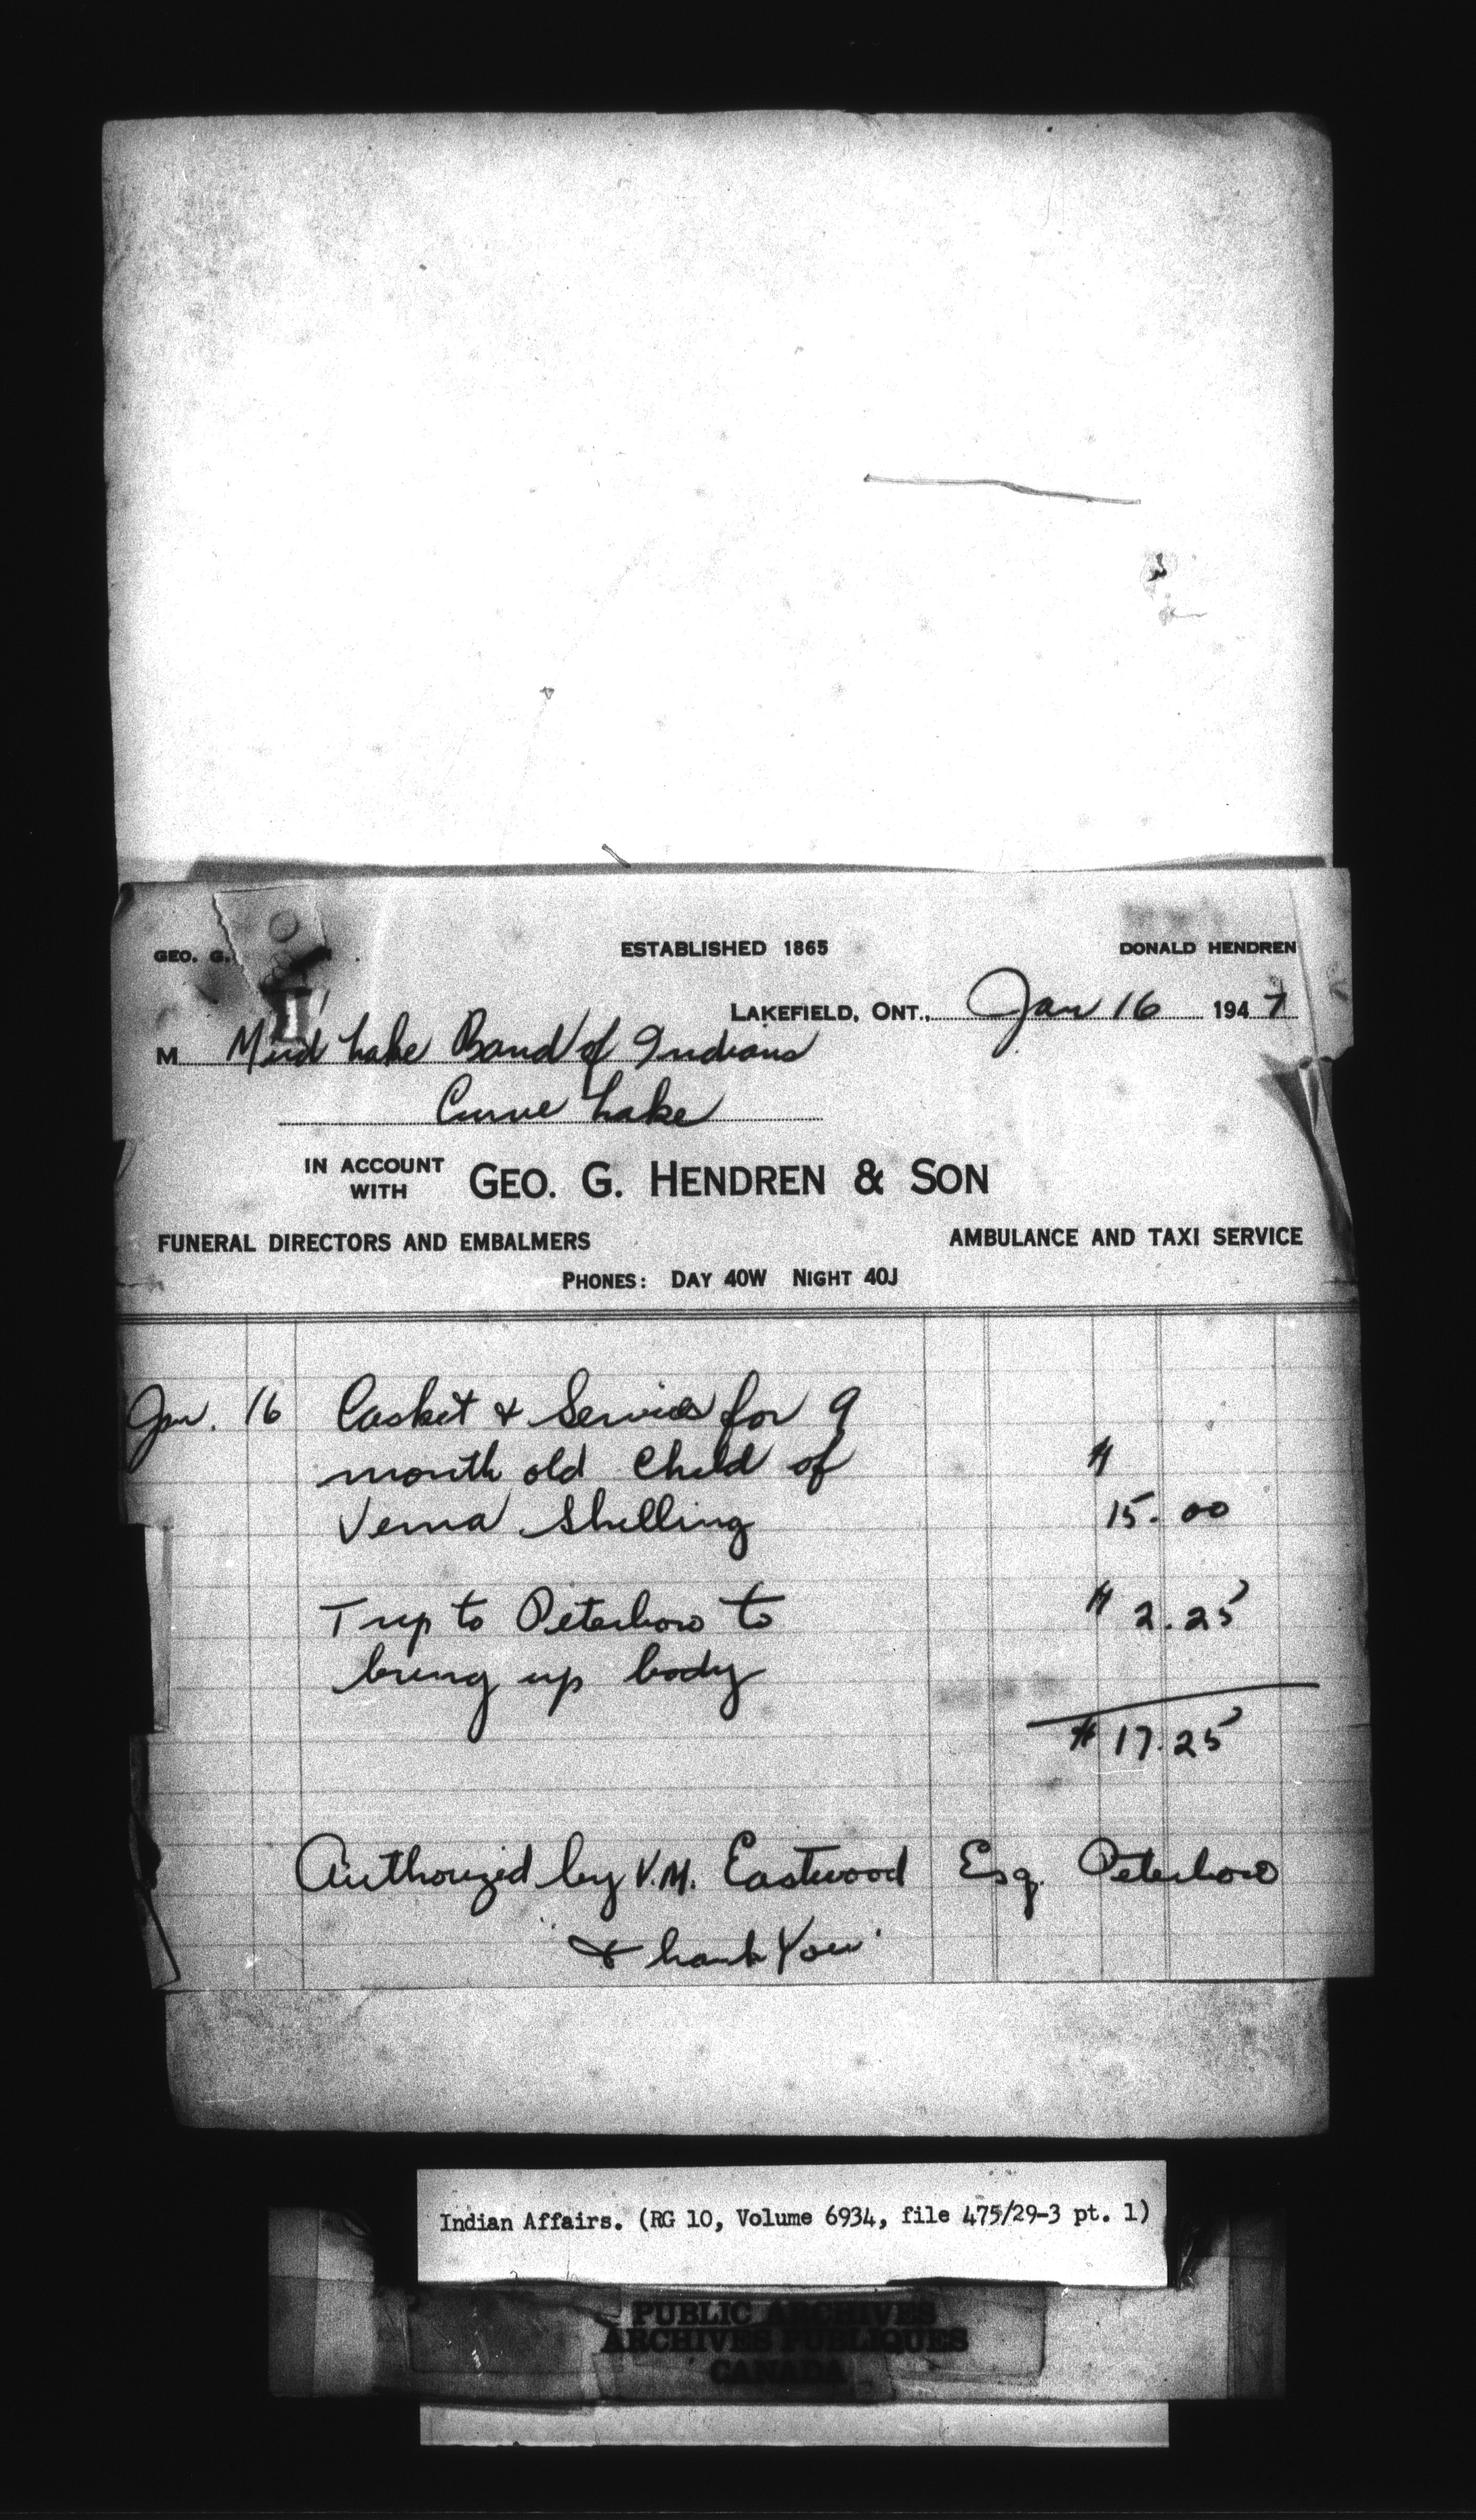 GEO. G.
ESTABLISHED 1865
DONALD HENDREN
LAKEFIELD, ONT., Jan 16 1947
M Mud Lake Band of Indians
Curve Lake
IN ACCOUNT WITH GEO. G. HENDREN & SON
FUNERAL DIRECTORS AND EMBALMERS AMBULANCE AND TAXI SERVICE
PHONES: DAY 40W NIGHT 40J
Jan. 16 Casket & Services for 9
month old Child of $
Verna Shilling 15.00
Trip to Peterboro to $ 2.25
bring up body
$ 17.25
Authorized by V.M. Eastwood Esq. Peterboro
"Thank You"
Indian Affairs. (RG 10, Volume 6934, file 475/29-3 pt. 1)
PUBLIC ARCHIVES
ARCHIVES PUBLIQUES
CANADA